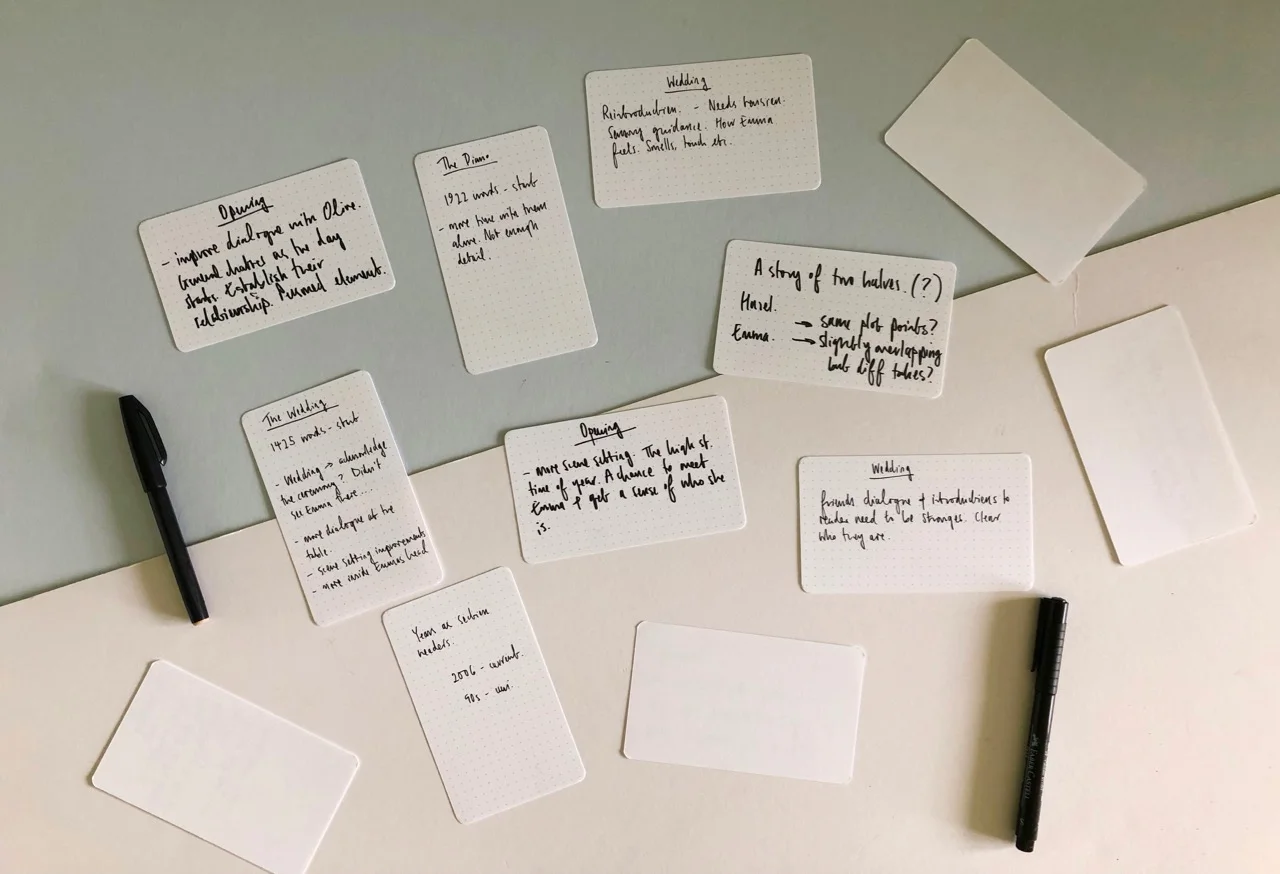 Wedding
Reintroduction. - Needs more
Sensory guidance. How Emma
feels. Smells, touch etc.
The Dinner
1922 words - start
- more time with them
alone. Not enough
detail.
Opening
- improve dialogue with Olive.
General chatter as the day
starts. Establish their
relationship. elements.
A story of two halves. (?)
Hazel.
→ same plot points?
Emma. → slightly overlapping
but diff takes?
The Wedding
1425 words - start
- Wedding → acknowledge
the ceremony? Didn't
see Emma there....
- more dialogue at the
table.
- scene setting improvements
- more inside Emmas head
Opening
- more scene setting. The high st.
time of year. A chance to meet
Emma + get a sense of who she
is.
Wedding
friends dialogue + introductions to
reader need to be stronger. Clear
who they are.
Years as section
headers.
2006 - current.
90s - uni.
FABER-CASTELL